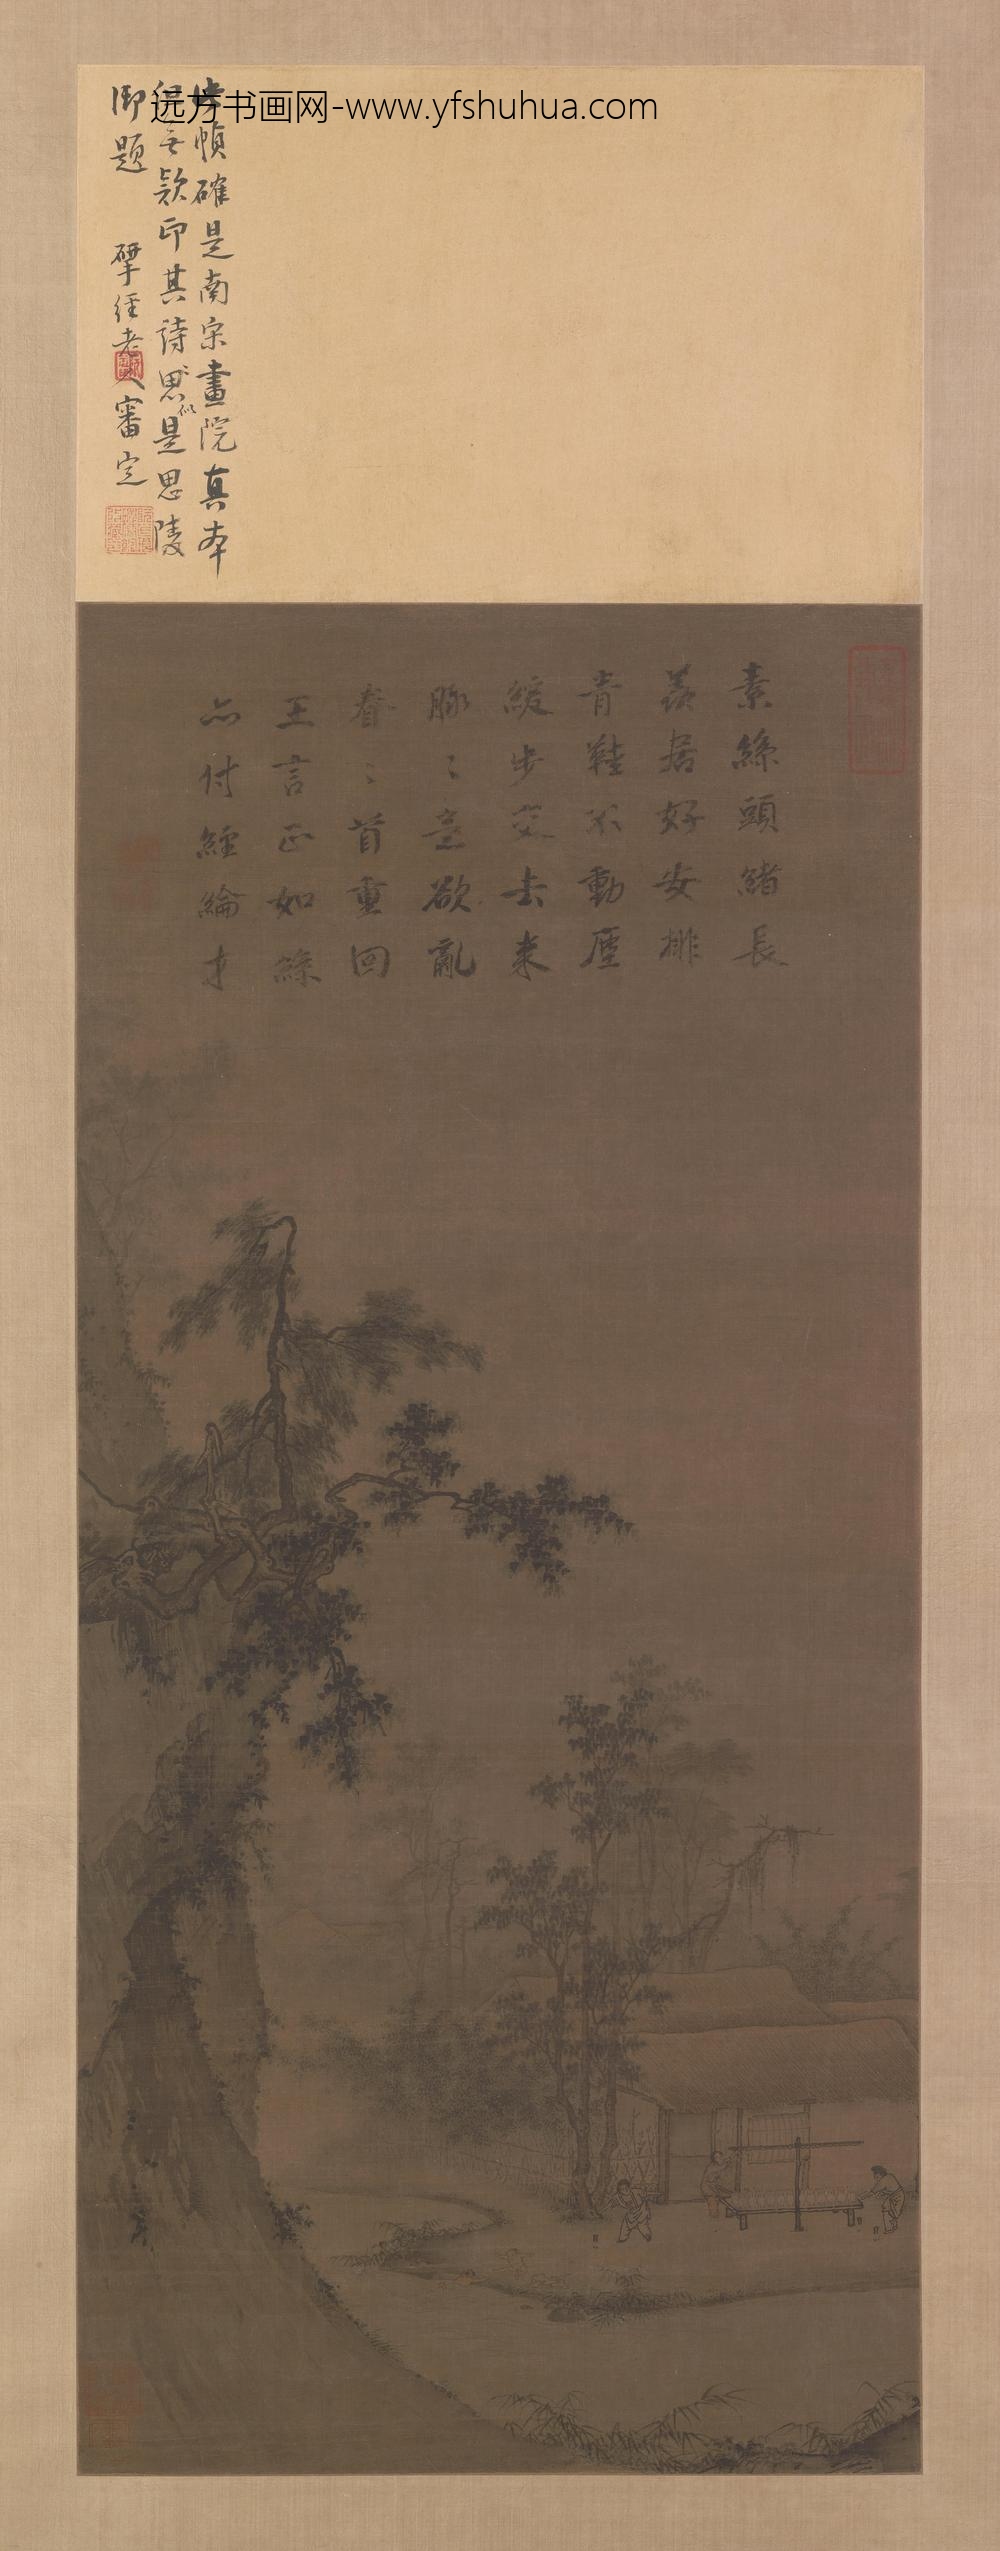 远方书画网-www.yfshuhua.com
幀確是南宋畫院真本
款印其詩思似是思陵
御題 揅經老人審定
素絲頭緒長
羨居好安排
青鞋不動塵
緩步交去來
脉〻意欲亂
眷〻首重回
王言正如絲
亦付經綸才